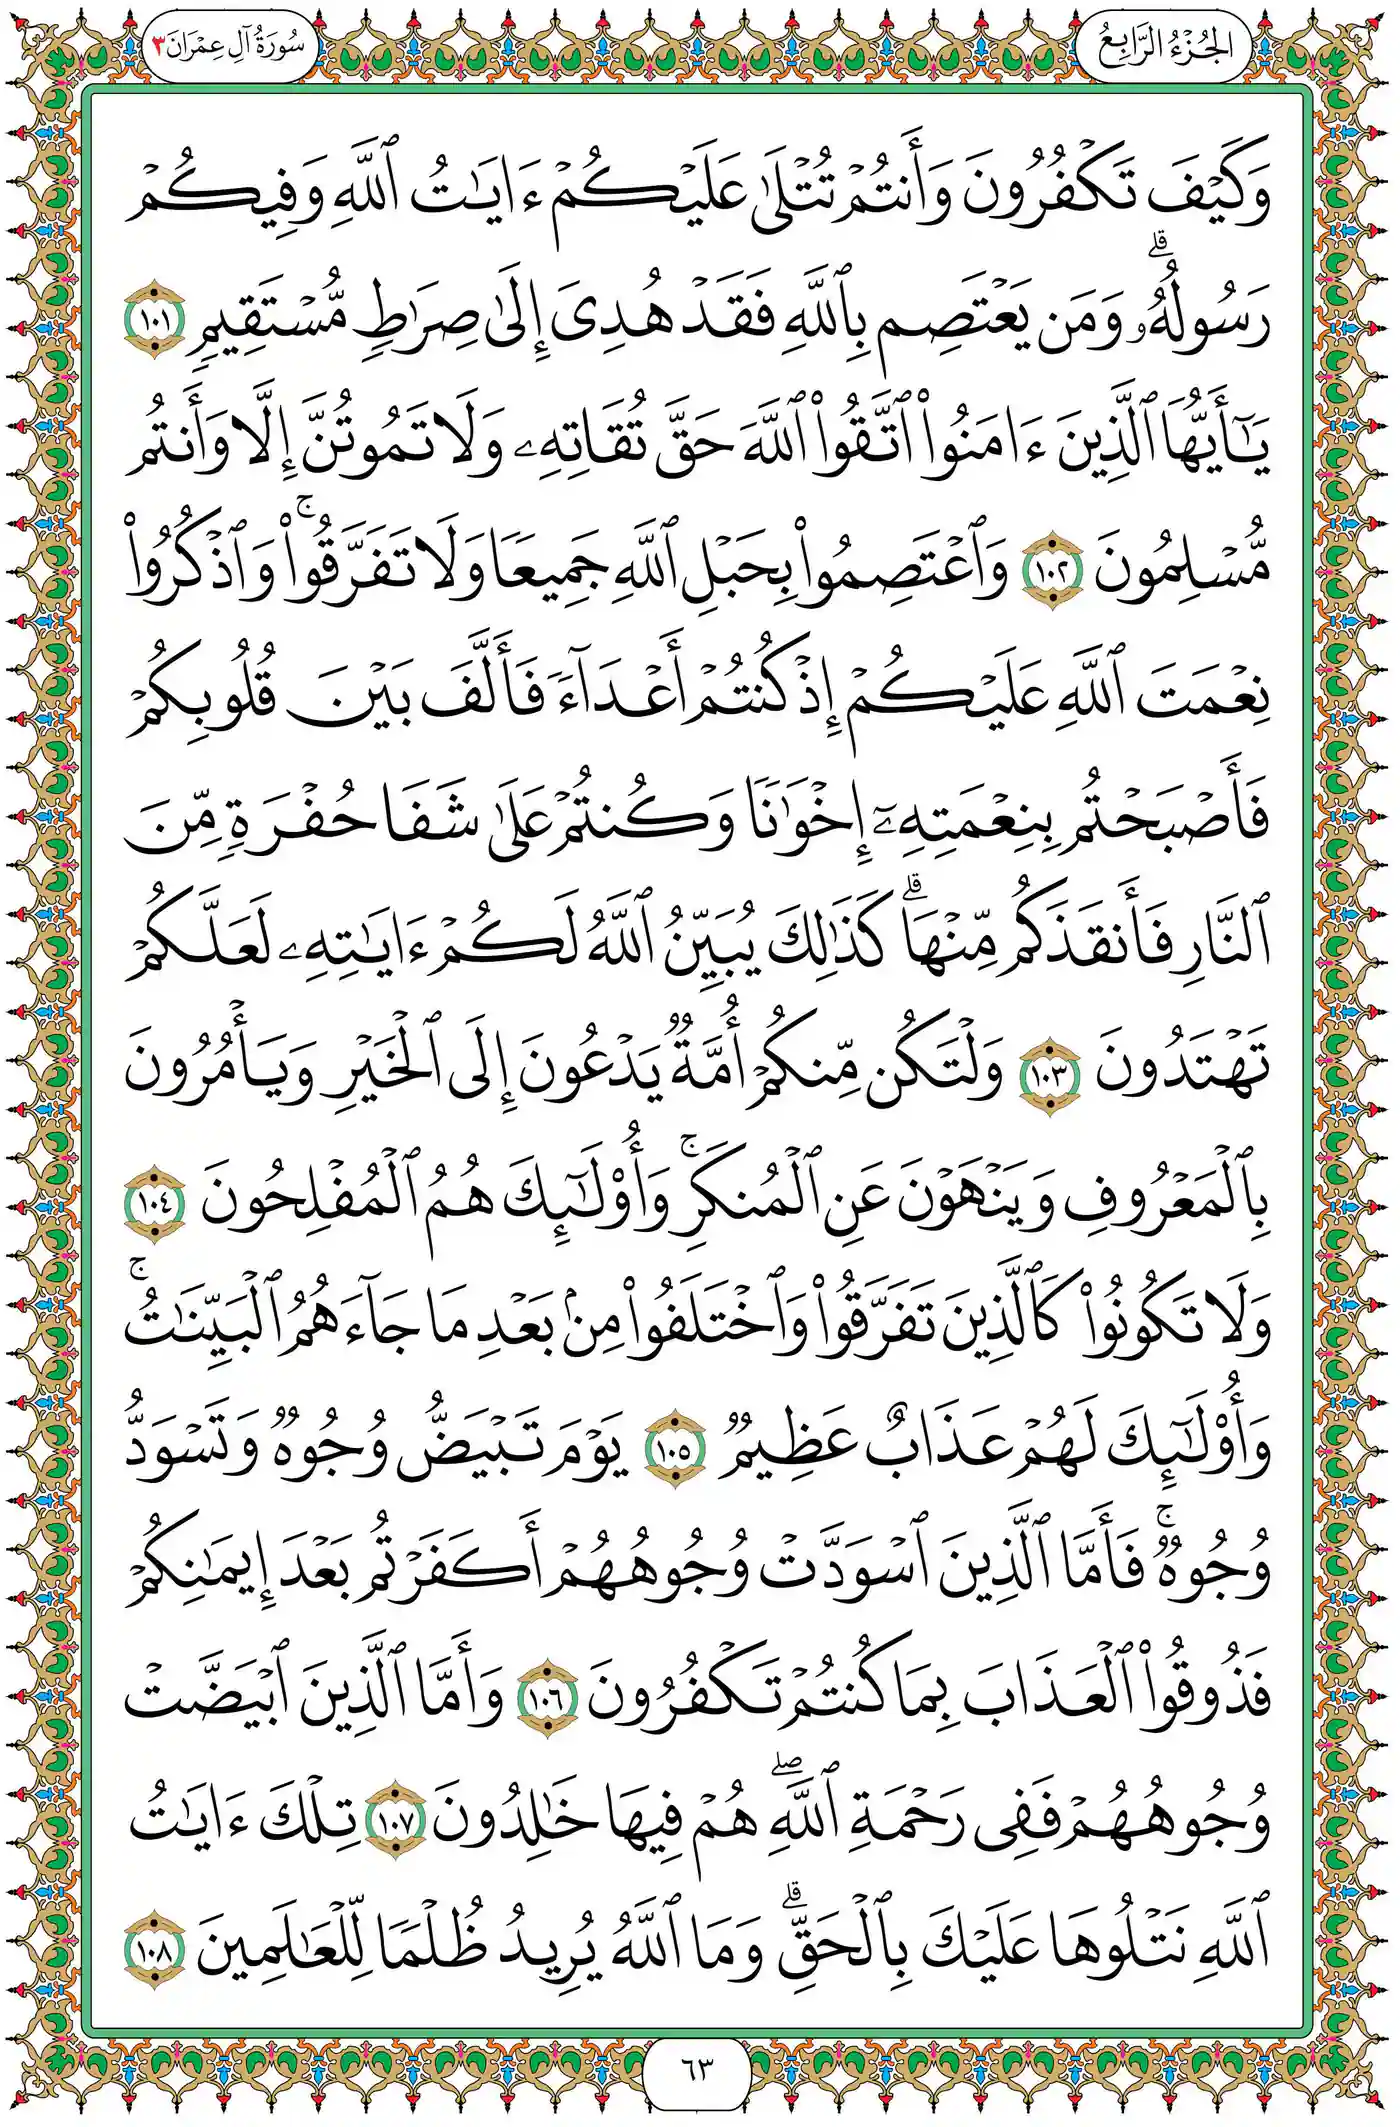 الجُزْءُ الرَّابِعُ
سُورَةُ آلِ عِمْرَانَ ٣
وَكَيْفَ تَكْفُرُونَ وَأَنتُمْ تُتْلَىٰ عَلَيْكُمْ ءَايَـٰتُ ٱللَّهِ وَفِيكُمْ
رَسُولُهُۥ ۗ وَمَن يَعْتَصِم بِٱللَّهِ فَقَدْ هُدِىَ إِلَىٰ صِرَٰطٍ مُّسْتَقِيمٍ ١٠١
يَـٰٓأَيُّهَا ٱلَّذِينَ ءَامَنُوا۟ ٱتَّقُوا۟ ٱللَّهَ حَقَّ تُقَاتِهِۦ وَلَا تَمُوتُنَّ إِلَّا وَأَنتُم
مُّسْلِمُونَ ١٠٢ وَٱعْتَصِمُوا۟ بِحَبْلِ ٱللَّهِ جَمِيعًا وَلَا تَفَرَّقُوا۟ ۚ وَٱذْكُرُوا۟
نِعْمَتَ ٱللَّهِ عَلَيْكُمْ إِذْ كُنتُمْ أَعْدَآءً فَأَلَّفَ بَيْنَ قُلُوبِكُمْ
فَأَصْبَحْتُم بِنِعْمَتِهِۦٓ إِخْوَٰنًا وَكُنتُمْ عَلَىٰ شَفَا حُفْرَةٍ مِّنَ
ٱلنَّارِ فَأَنقَذَكُم مِّنْهَا ۗ كَذَٰلِكَ يُبَيِّنُ ٱللَّهُ لَكُمْ ءَايَـٰتِهِۦ لَعَلَّكُمْ
تَهْتَدُونَ ١٠٣ وَلْتَكُن مِّنكُمْ أُمَّةٌ يَدْعُونَ إِلَى ٱلْخَيْرِ وَيَأْمُرُونَ
بِٱلْمَعْرُوفِ وَيَنْهَوْنَ عَنِ ٱلْمُنكَرِ ۚ وَأُو۟لَـٰٓئِكَ هُمُ ٱلْمُفْلِحُونَ ١٠٤
وَلَا تَكُونُوا۟ كَٱلَّذِينَ تَفَرَّقُوا۟ وَٱخْتَلَفُوا۟ مِنۢ بَعْدِ مَا جَآءَهُمُ ٱلْبَيِّنَـٰتُ ۚ
وَأُو۟لَـٰٓئِكَ لَهُمْ عَذَابٌ عَظِيمٌ ١٠٥ يَوْمَ تَبْيَضُّ وُجُوهٌ وَتَسْوَدُّ
وُجُوهٌ ۚ فَأَمَّا ٱلَّذِينَ ٱسْوَدَّتْ وُجُوهُهُمْ أَكَفَرْتُم بَعْدَ إِيمَـٰنِكُمْ
فَذُوقُوا۟ ٱلْعَذَابَ بِمَا كُنتُمْ تَكْفُرُونَ ١٠٦ وَأَمَّا ٱلَّذِينَ ٱبْيَضَّتْ
وُجُوهُهُمْ فَفِى رَحْمَةِ ٱللَّهِ ۖ هُمْ فِيهَا خَـٰلِدُونَ ١٠٧ تِلْكَ ءَايَـٰتُ
ٱللَّهِ نَتْلُوهَا عَلَيْكَ بِٱلْحَقِّ ۗ وَمَا ٱللَّهُ يُرِيدُ ظُلْمًا لِّلْعَـٰلَمِينَ ١٠٨
٦٣